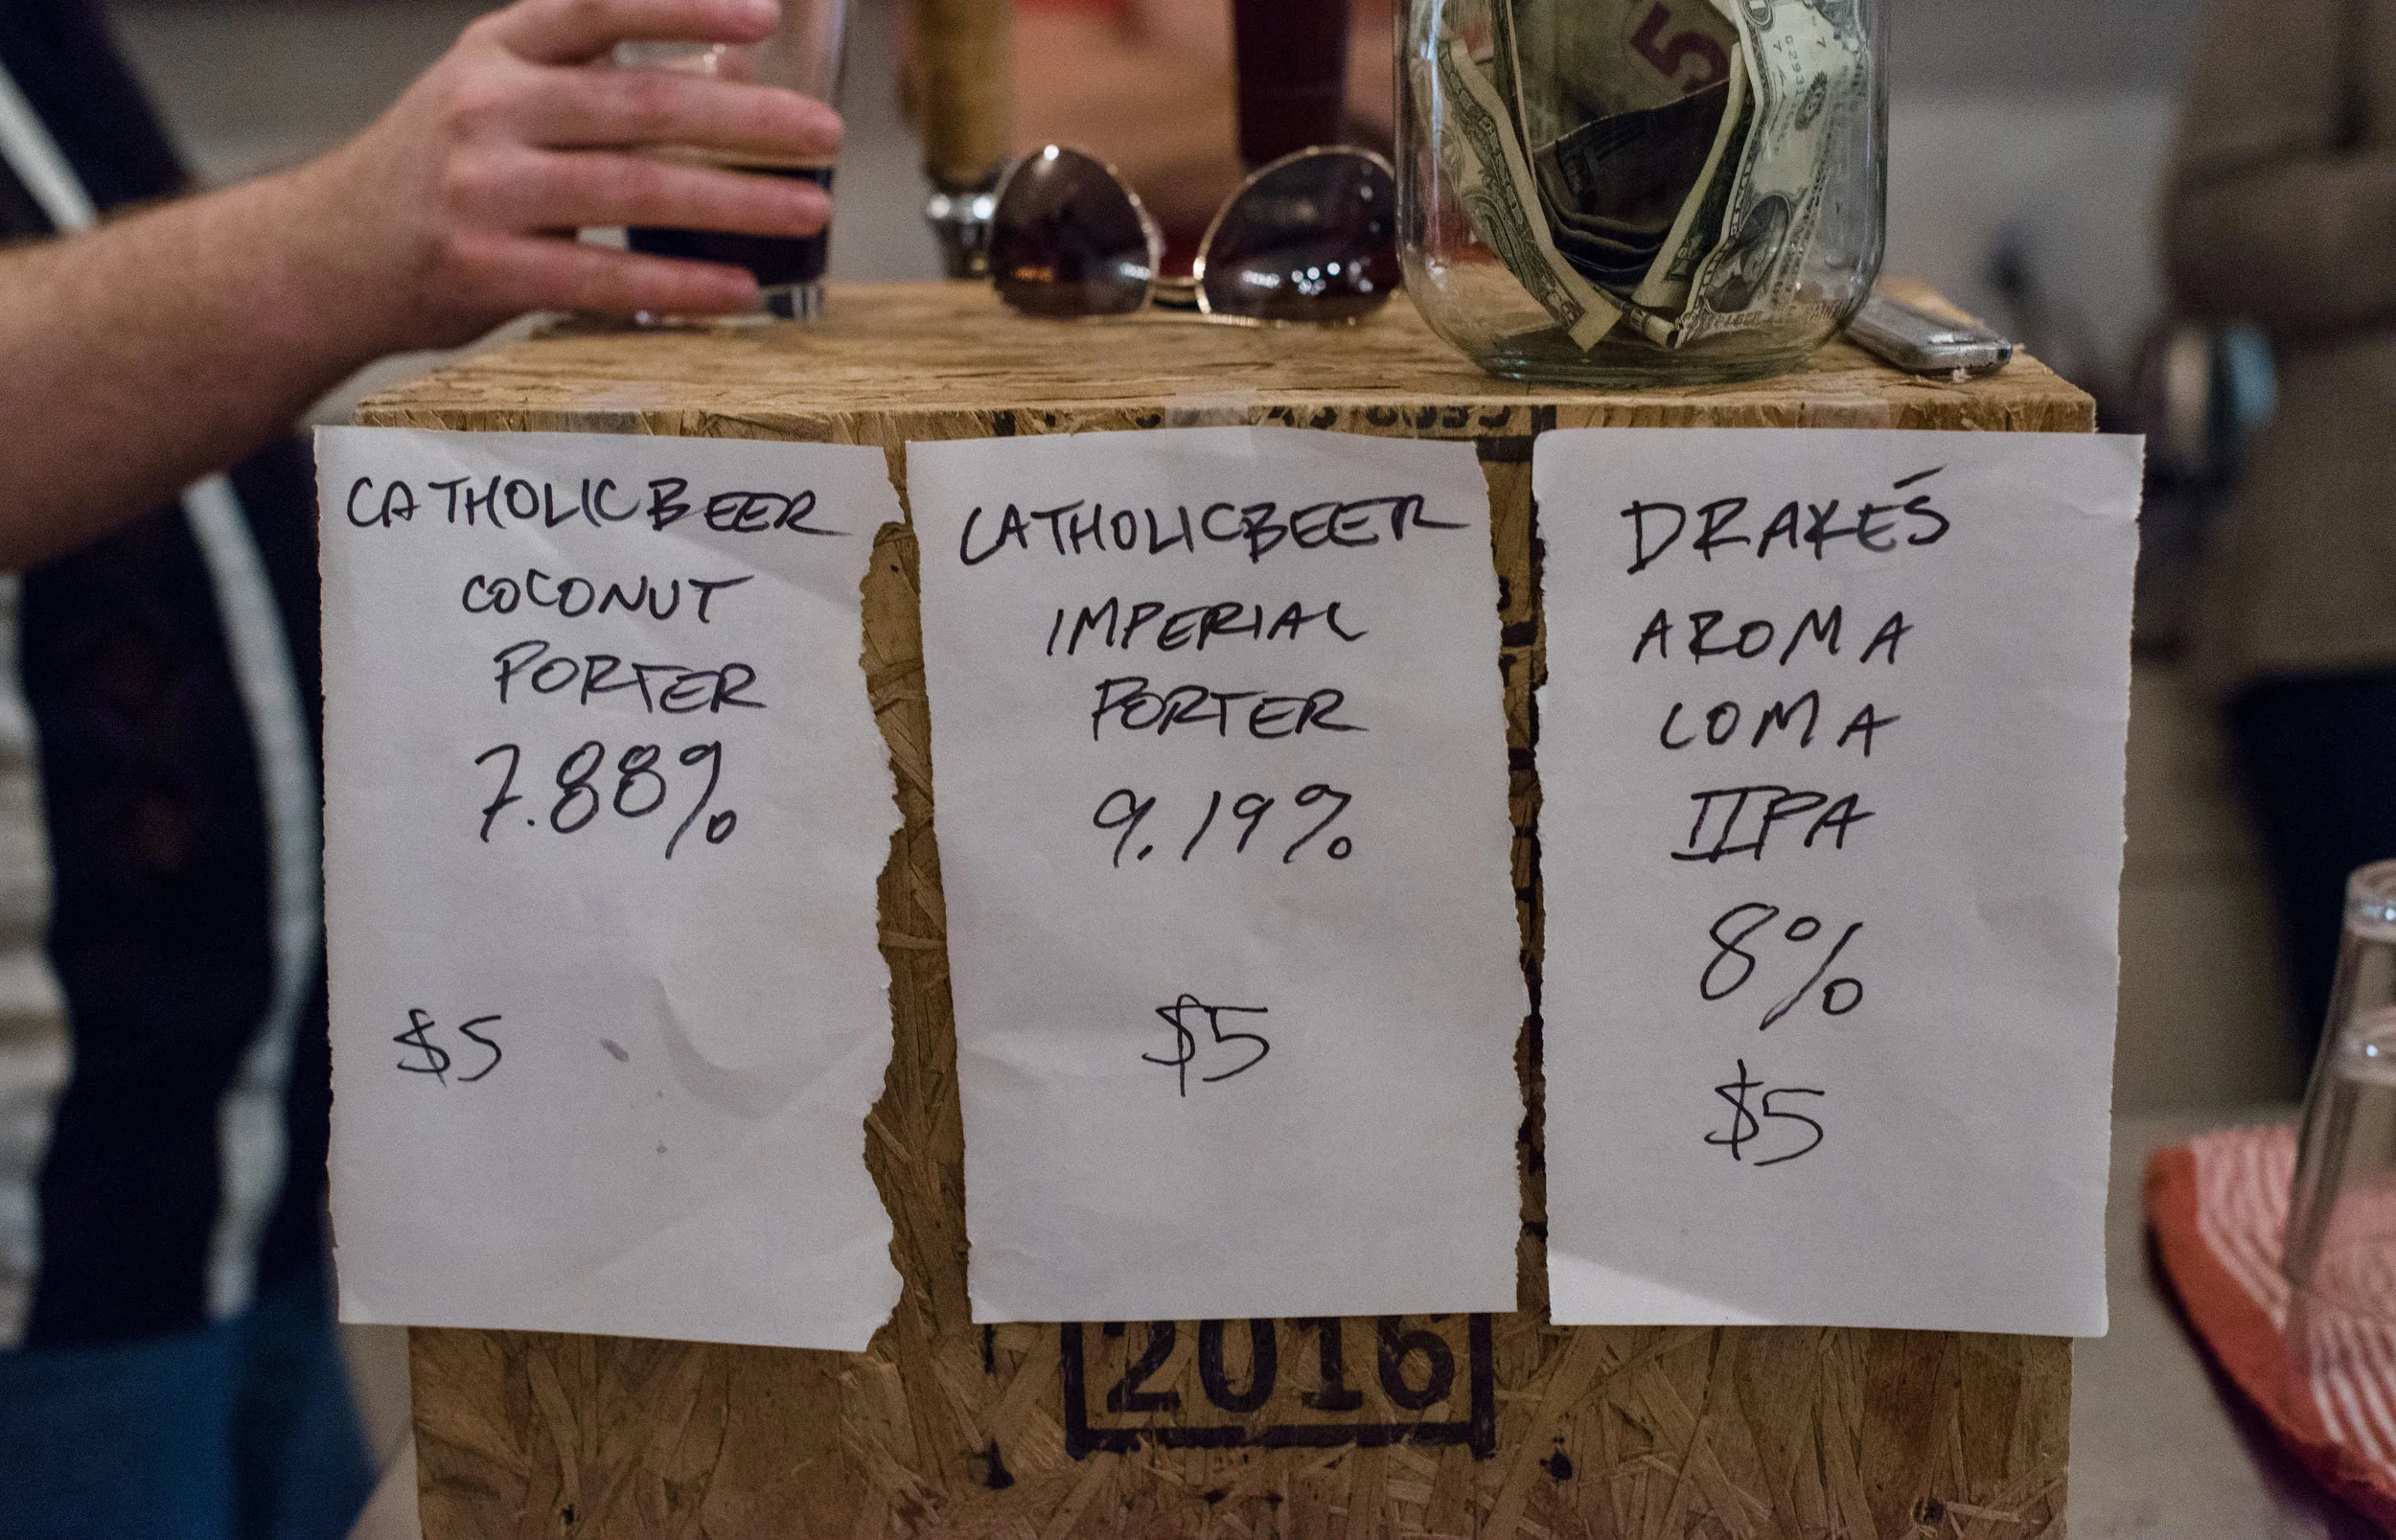 5
CATHOLICBEER
COCONUT
PORTER
7.88%
$5
CATHOLICBEER
IMPERIAL
PORTER
9.19%
$5
DRAKE'S
AROMA
COMA
IIPA
8%
$5
2016